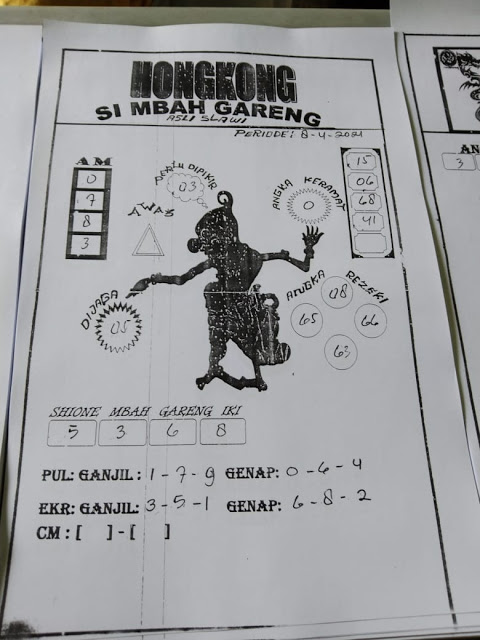 HONGKONG
SI MBAH GARENG
ASLI SLAWI
PERIODE: 8-4-2021
AM
0
7
8
3
PERLU DIPIKIR
03
AWAS
ANGKA KERAMAT
0
15
06
68
41
DIJAGA
05
ANGKA REZEKI
08
65
66
63
SHIONE MBAH GARENG IKI
5 3 6 8
PUL: GANJIL: 1-7-9 GENAP: 0-6-4
EKR: GANJIL: 3-5-1 GENAP: 6-8-2
CM : [ ] - [ ]
AN
3